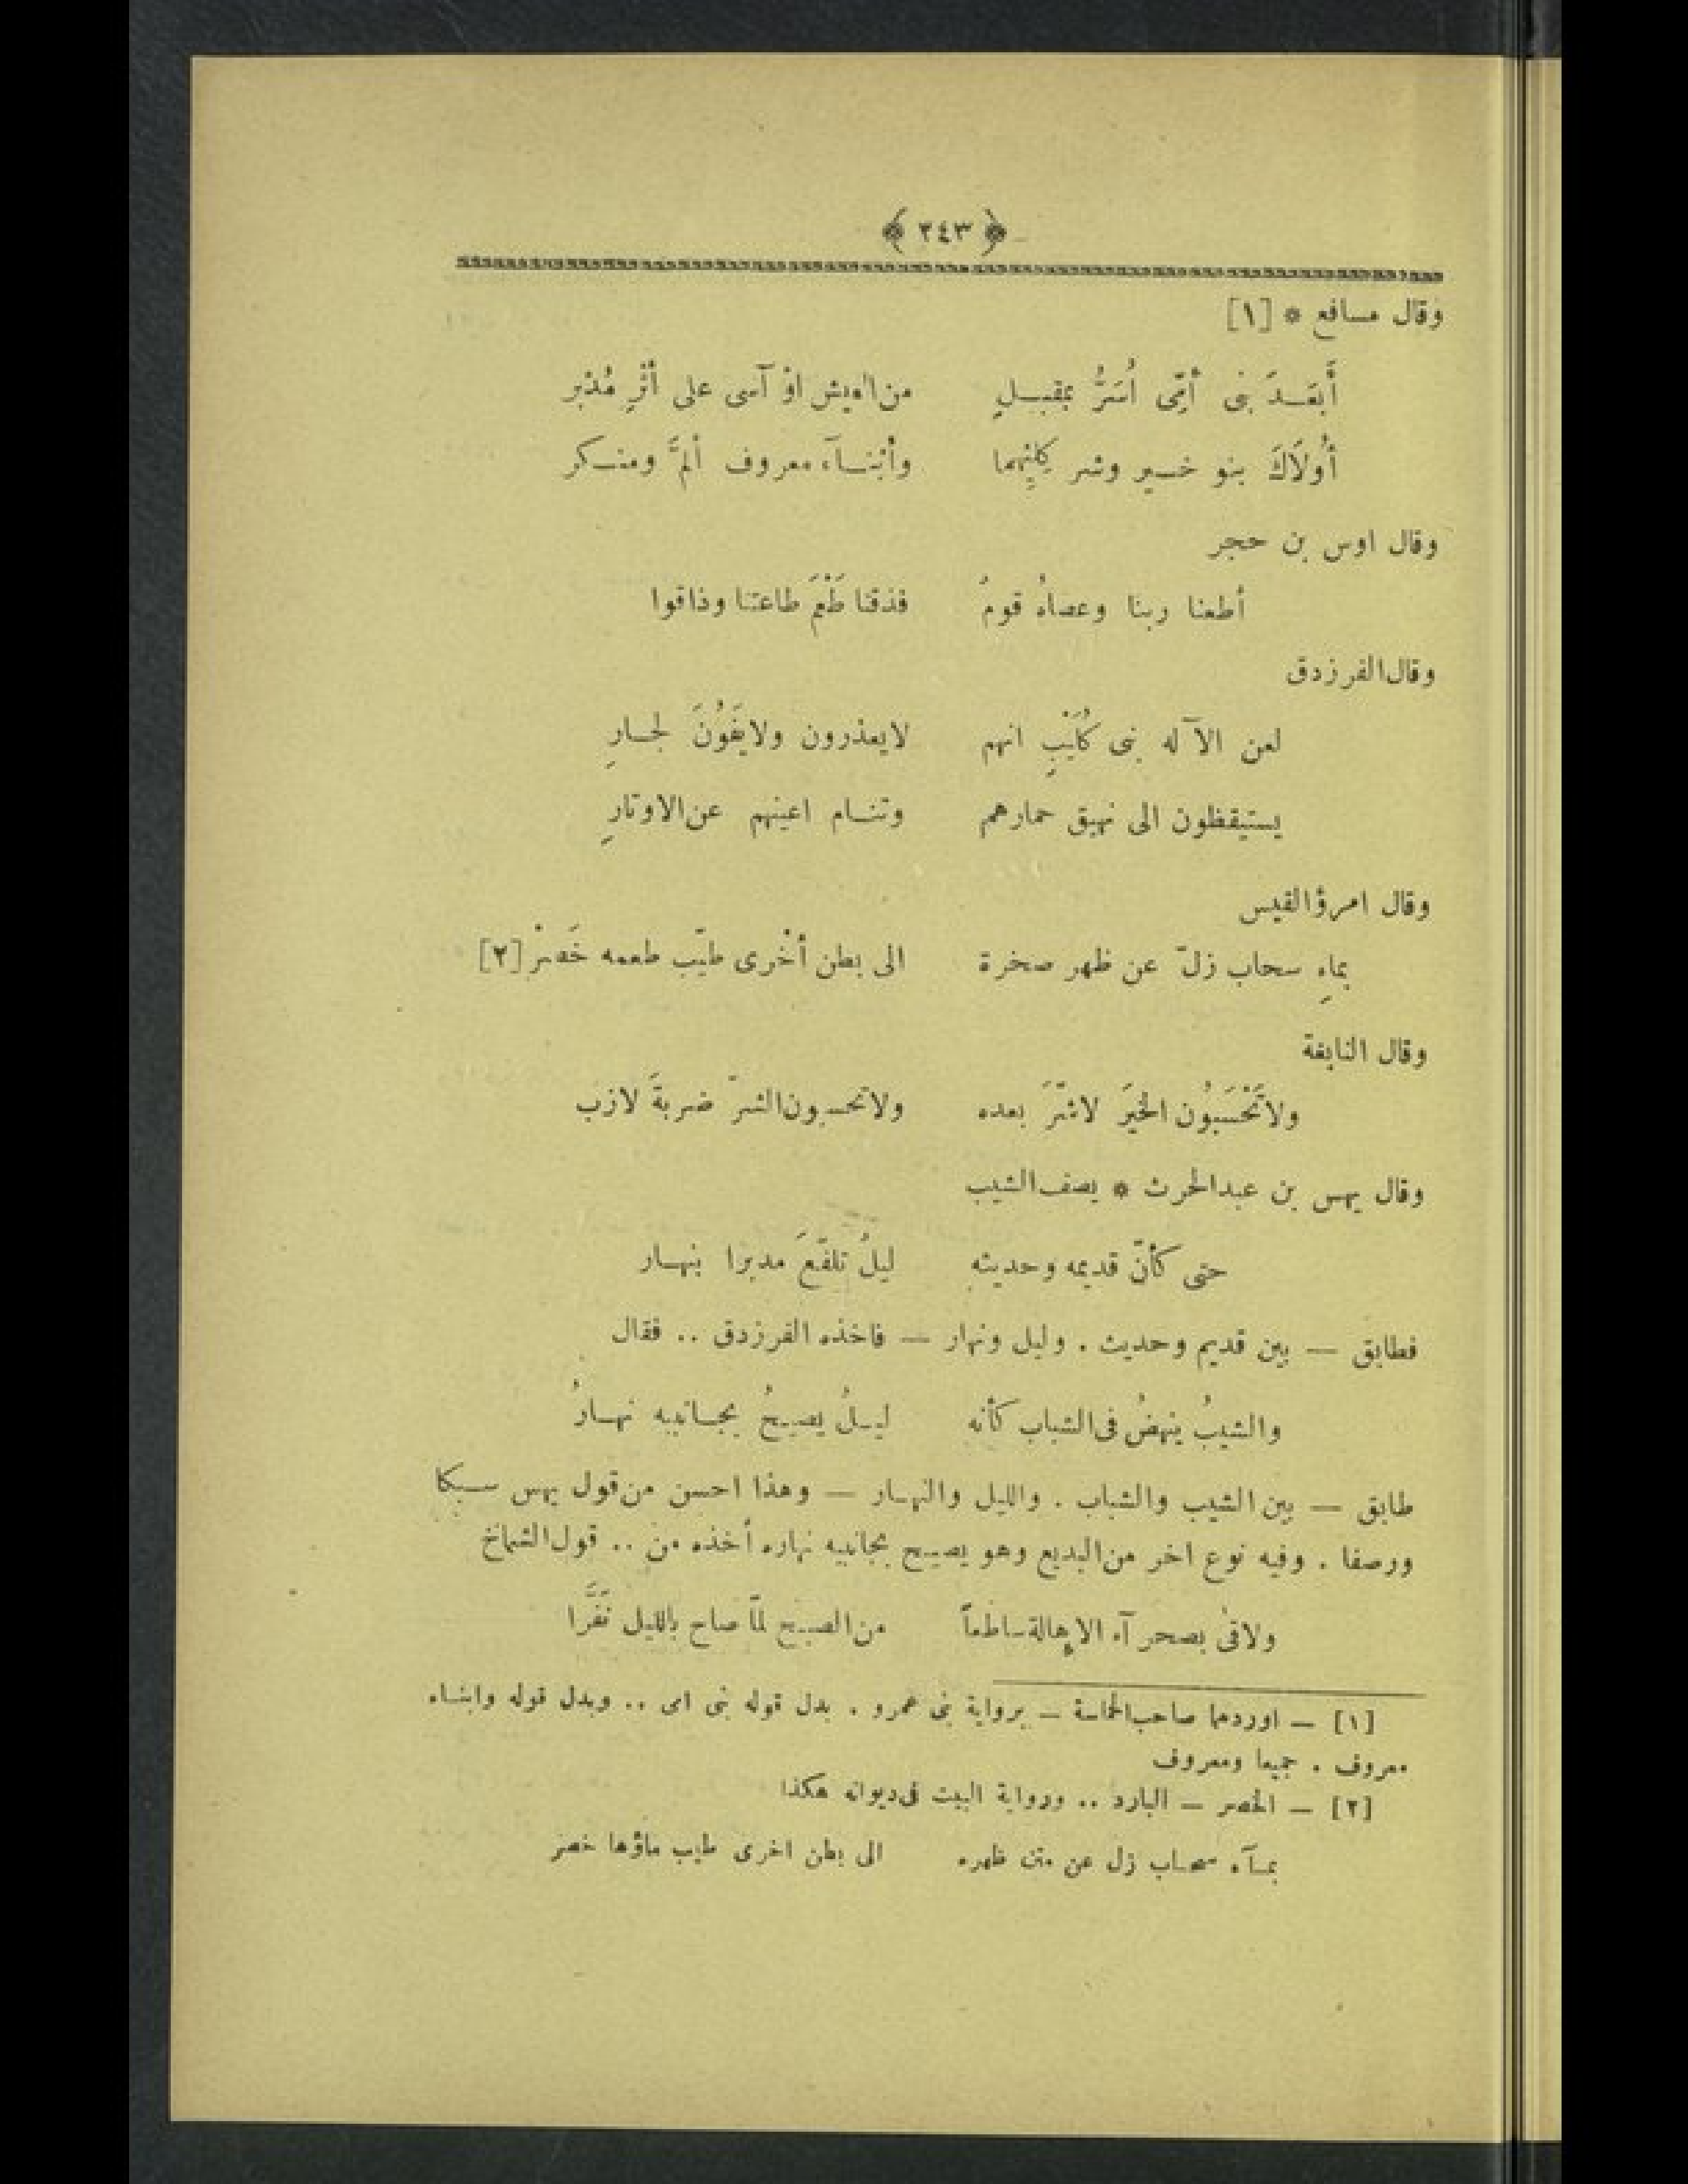 ﴿ ٢٤٣ ﴾
وقال مسافع * [١]
أَبَعَدَ بَنى أُمِّى اُسَرُّ بمقبلٍ من العيش اوْ آسى على أثْرِ مُدْبر
أُولَاكَ بنو خير وشر كِلَيْهِما وأبْنَآء معروف ألمَّ ومنكر
وقال اوس بن حجر
أطعنا ربنا وعصاهُ قومٌ فذقنا طَعْمَ طاعتنا وذاقوا
وقال الفرزدق
لعن الآله بنى كُلَيْبٍ انهم لايعذرون ولايَفَوُنَ لجارِ
يستيقظون الى نهيق حمارهم وتنام اعينهم عن الاوتارِ
وقال امرؤ القيس
بماءِ سحاب زلّ عن ظهر صخرة الى بطن أخْرى طيّب طعمه خَصِرْ [٢]
وقال النابغة
ولاتَحْسَبُون الخيَر لاشرَّ بعده ولاتحسبون الشرّ ضربةَ لازب
وقال يهس بن عبدالحرث * يصف الشيب
حتى كأنّ قديمه وحديثه ليلُ تلفّعَ مدبرا بنهار
فطابق — بين قديم وحديث . وليل ونهار — فاخذه الفرزدق .. فقال
والشيبُ ينهضُ فى الشباب كأنه ليلُ يصيحُ بجانبيه نهارُ
طابق — بين الشيب والشباب . والليل والنهار — وهذا احسن من قول يهس سبكا
ورصفا . وفيه نوع اخر من البديع وهو يصيح بجانبيه نهاره أخذه من .. قول الشماخ
ولاقىٰ بصحرآء الاهالة ساطعاً من الصبح لمّا صاح بالليل نَفَّرا
[١] — اوردهما صاحب الحماسة — برواية بنى عمرو . بدل قوله بنى امى .. وبدل قوله وابناء
معروف . جميعا ومعروف
[٢] — الخصر — البارد .. ورواية البيت فى ديوانه هكذا
بمآء سحاب زل عن متن ظهره الى بطن اخرى طيب ماؤها خصر